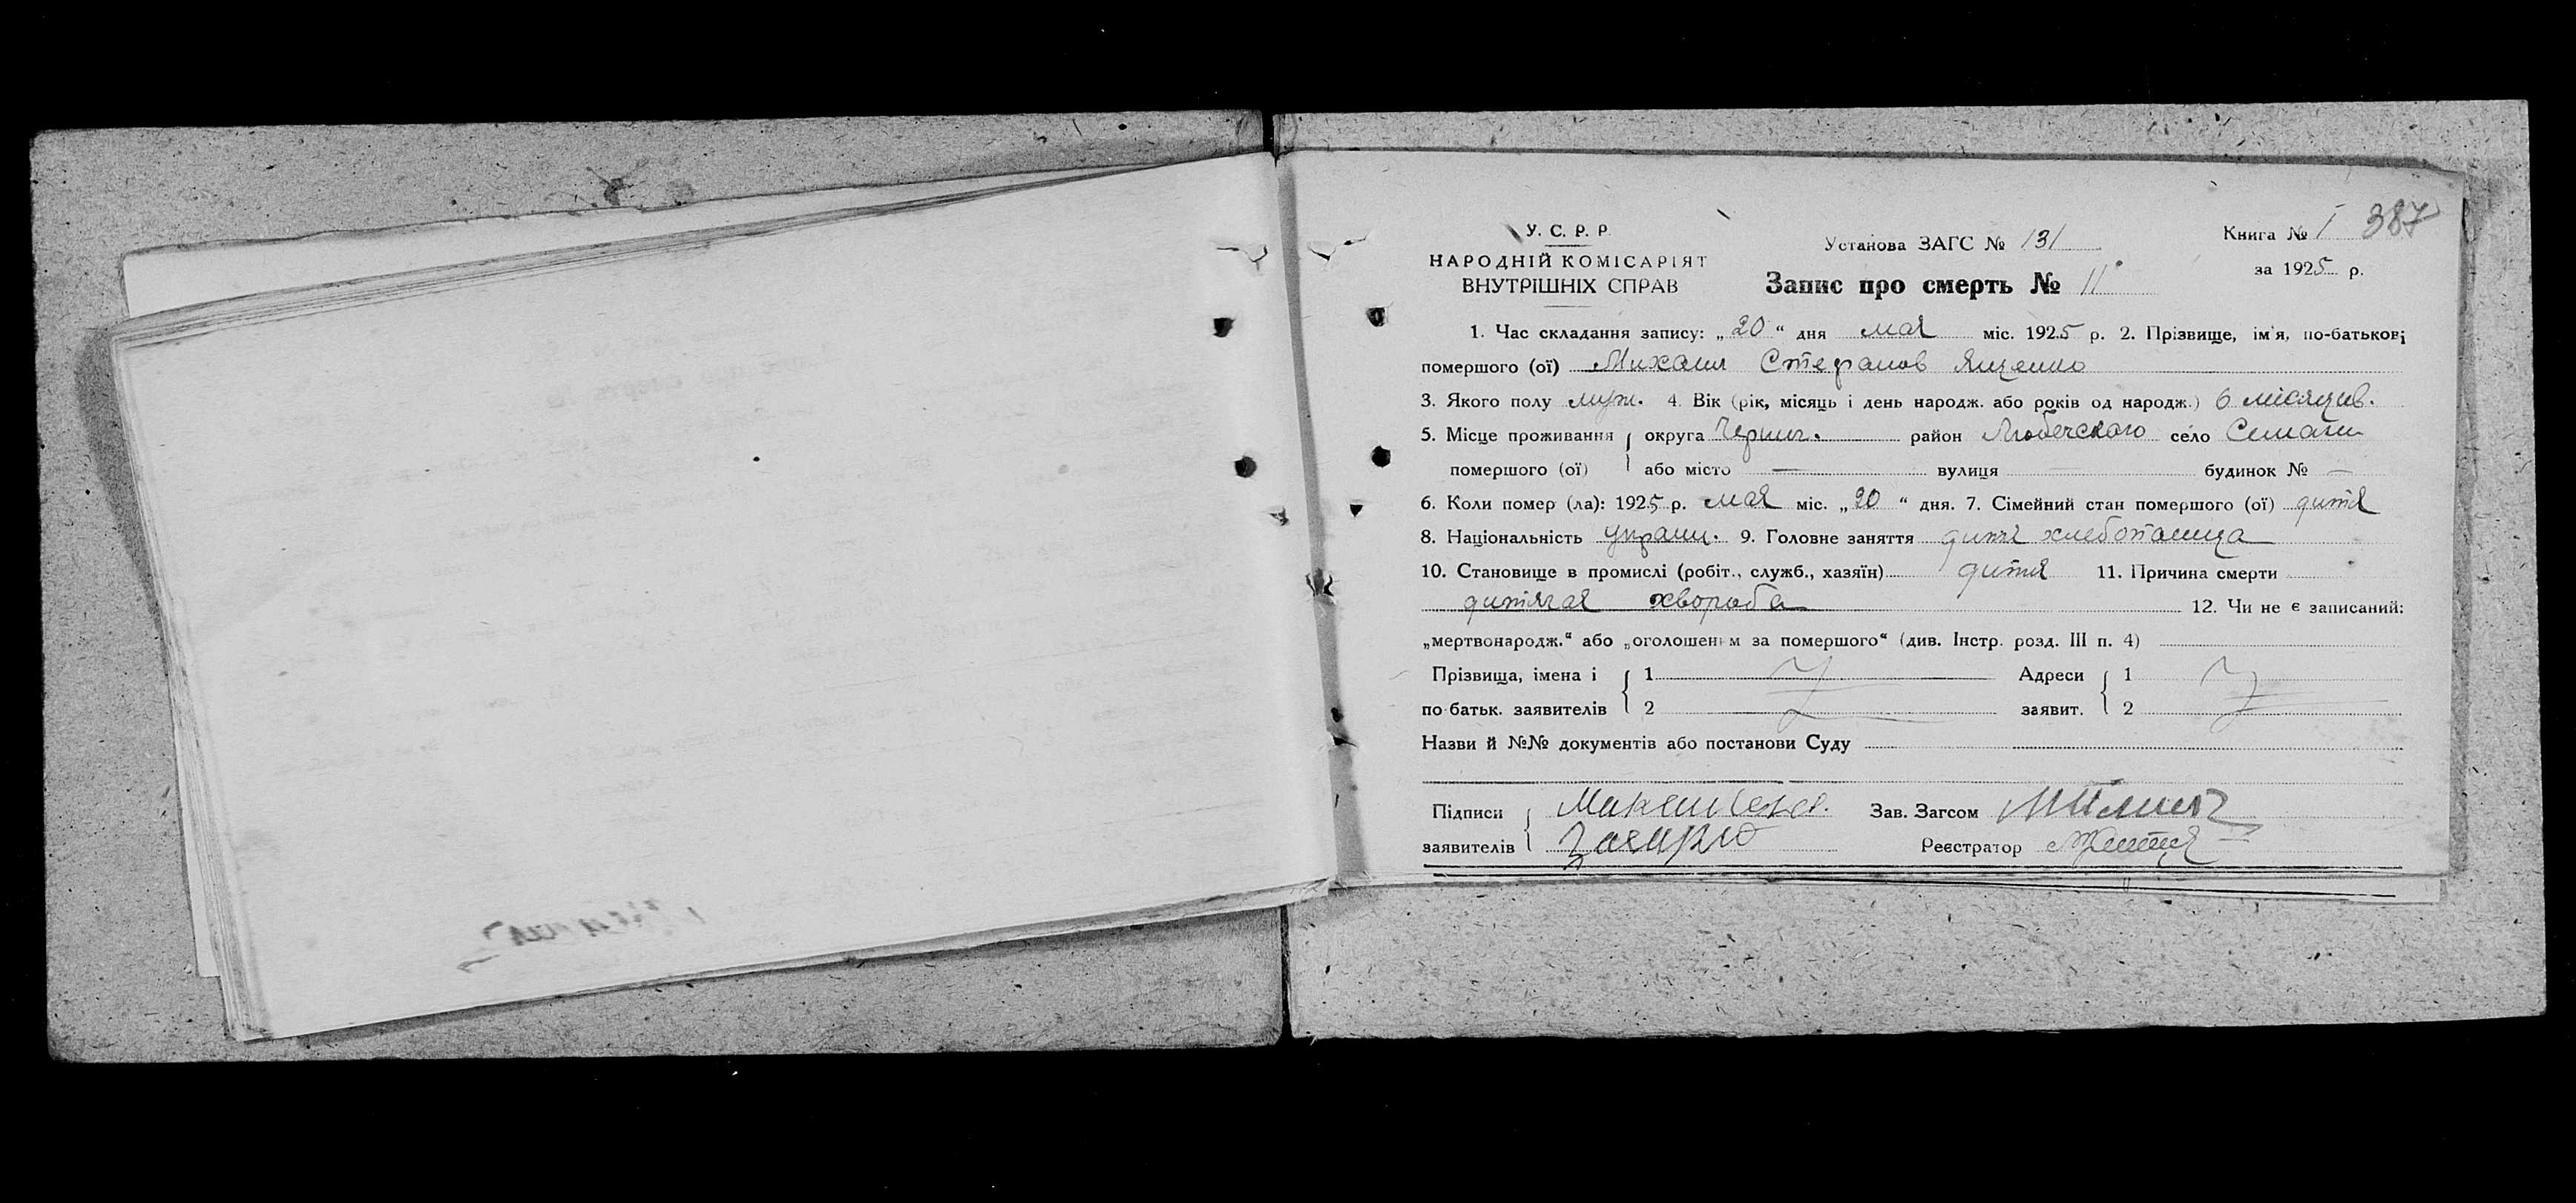 387
У. С. Р. Р.
НАРОДНІЙ КОМІСАРІЯТ
ВНУТРІШНІХ СПРАВ
Установа ЗАГС № 131
Книга № I
за 1925 р.
Запис про смерть № 11
1. Час складання запису: „20“ дня мая міс. 1925 р. 2. Прізвище, ім'я, по-батькові
помершого (ої) Михаил Стефанов Ященко
3. Якого полу муж. 4. Вік (рік, місяць і день народж. або років од народж.) 6 місяцив.
5. Місце проживання округа Черниг. район Любечского село Семаки
помершого (ої) або місто — вулиця будинок № —
6. Коли помер (ла): 1925 р. мая міс. „20“ дня. 7. Сімейний стан помершого (ої) дитя
8. Національність Украин. 9. Головне заняття дитя хлебопашца
10. Становище в промислі (робіт., служб., хазяїн) дитя 11. Причина смерти
дитячая хвороба 12. Чи не є записаний:
„мертвонародж.“ або „оголошеним за помершого“ (див. Інстр. розд. III п. 4)
Прізвища, імена і 1 Адреси 1
по батьк. заявителів 2 заявит. 2
Назви й №№ документів або постанови Суду
Підписи Зав. Загсом
заявителів Реєстратор